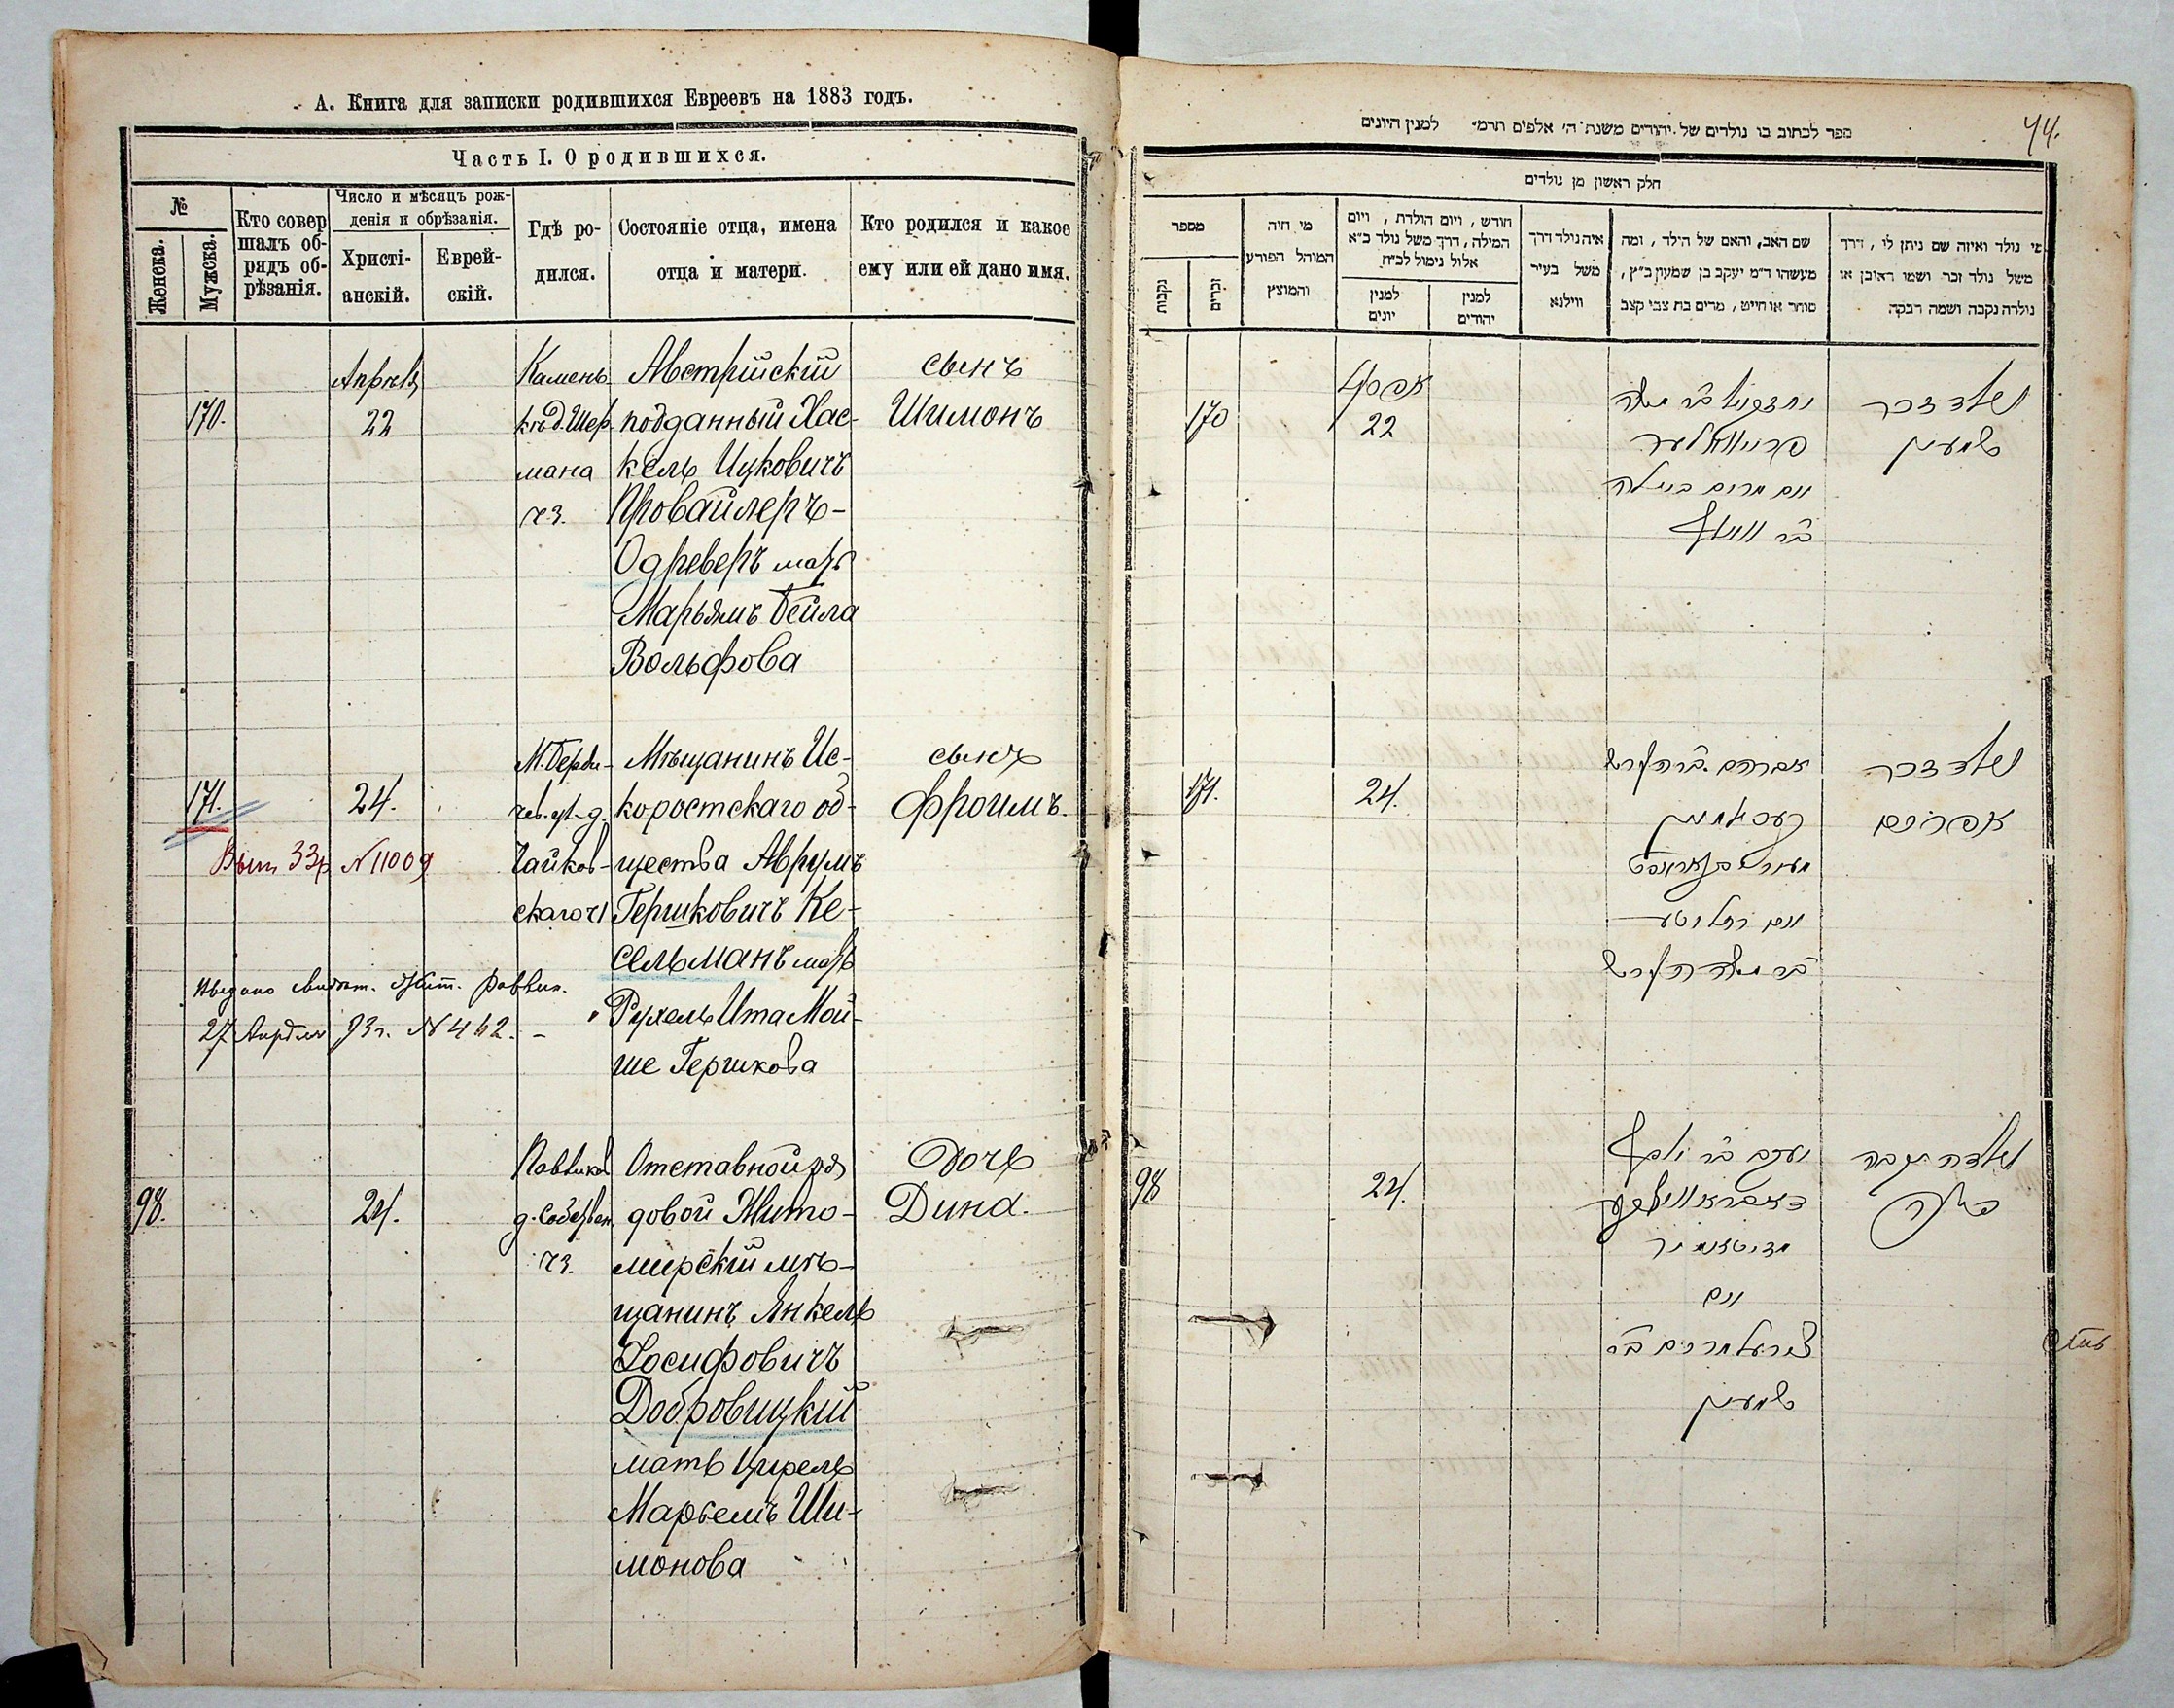 А. Книга для записки родившихся Евреевъ на 1883 годъ.
Часть I. О родившихся.
№
Женска.
Мужска.
Кто совер
шалъ об-
рядъ об-
рѣзанія.
Число и мѣсяцъ рож-
денія и обрѣзанія.
Христі-
анскій.
Еврей-
скій.
Гдѣ ро-
дился.
Состояніе отца, имена
отца и матери.
Кто родился и какое
ему или ей дано имя.
170.
Апрѣль
22
Камень
къ д. Шер
мана
ч 3.
Австрійскій
подданный Хас-
кель Ицковичъ
Провайлеръ-
Одреверъ мать
Марьямъ Бейла
Вольфова
сынъ
Шимонъ
171.
24.
М. Берди-
чев. ул. д.
Чайков-
скаго ч 1
Мѣщанинъ Ис-
коростскаго об-
щества Аврумъ
Гершковичъ Ке-
сельманъ мать
Рухель Ита Мой-
ше Гершкова
сынъ
Фроимъ.
Вып 33 № 11009
Выдано свидѣт. Жит. Раввин.
27 Апрѣля 93 г. № 462. -
98.
24.
д. Собствен.
ч 3.
Отставной ря
довой Жито-
мирскій мѣ-
щанинъ Янкель
Іосифовичъ
Добровицкій
мать Цирель
Марьемъ Ши-
монова
дочь
Дина.
44.
ספר לכתוב בו נולדים של יהודים משנת ה' אלפים תרמ״ למנין היונים
חלק ראשון מן נולדים
מספר
נקבות
זכרים
מי היה
המוהל הפורע
והמוצץ
חודש, ויום הולדת, ויום
המילה, דרך משל נולד כ״א
אלול נימול לכ״ח
למנין
יונים
למנין
יהודים
איה נולד דרך
משל בעיר
ווילנא
שם האב, והאם של הילד, ומה
מעשהו ד״מ יעקב בן שמעון כ״ץ,
סוחר או חייט, מרים בת צבי קצב
מי נולד ואיזה שם ניתן לו, דרך
משל נולד זכר ושמו ראובן או
נולדה נקבה ושמה רבקה
170
אפריל
22
ואם מרים ביילה
נולד זכר
שמעון
171.
24.
אברהם בר הירש
קעסילמן
ואם רחל יטע
בר משה הירש
נולד זכר
אפרים
98
24.
יעקב בר יוסף
ואם
צירעל מרים בר
שמעון
נולדה נקבה
דינה